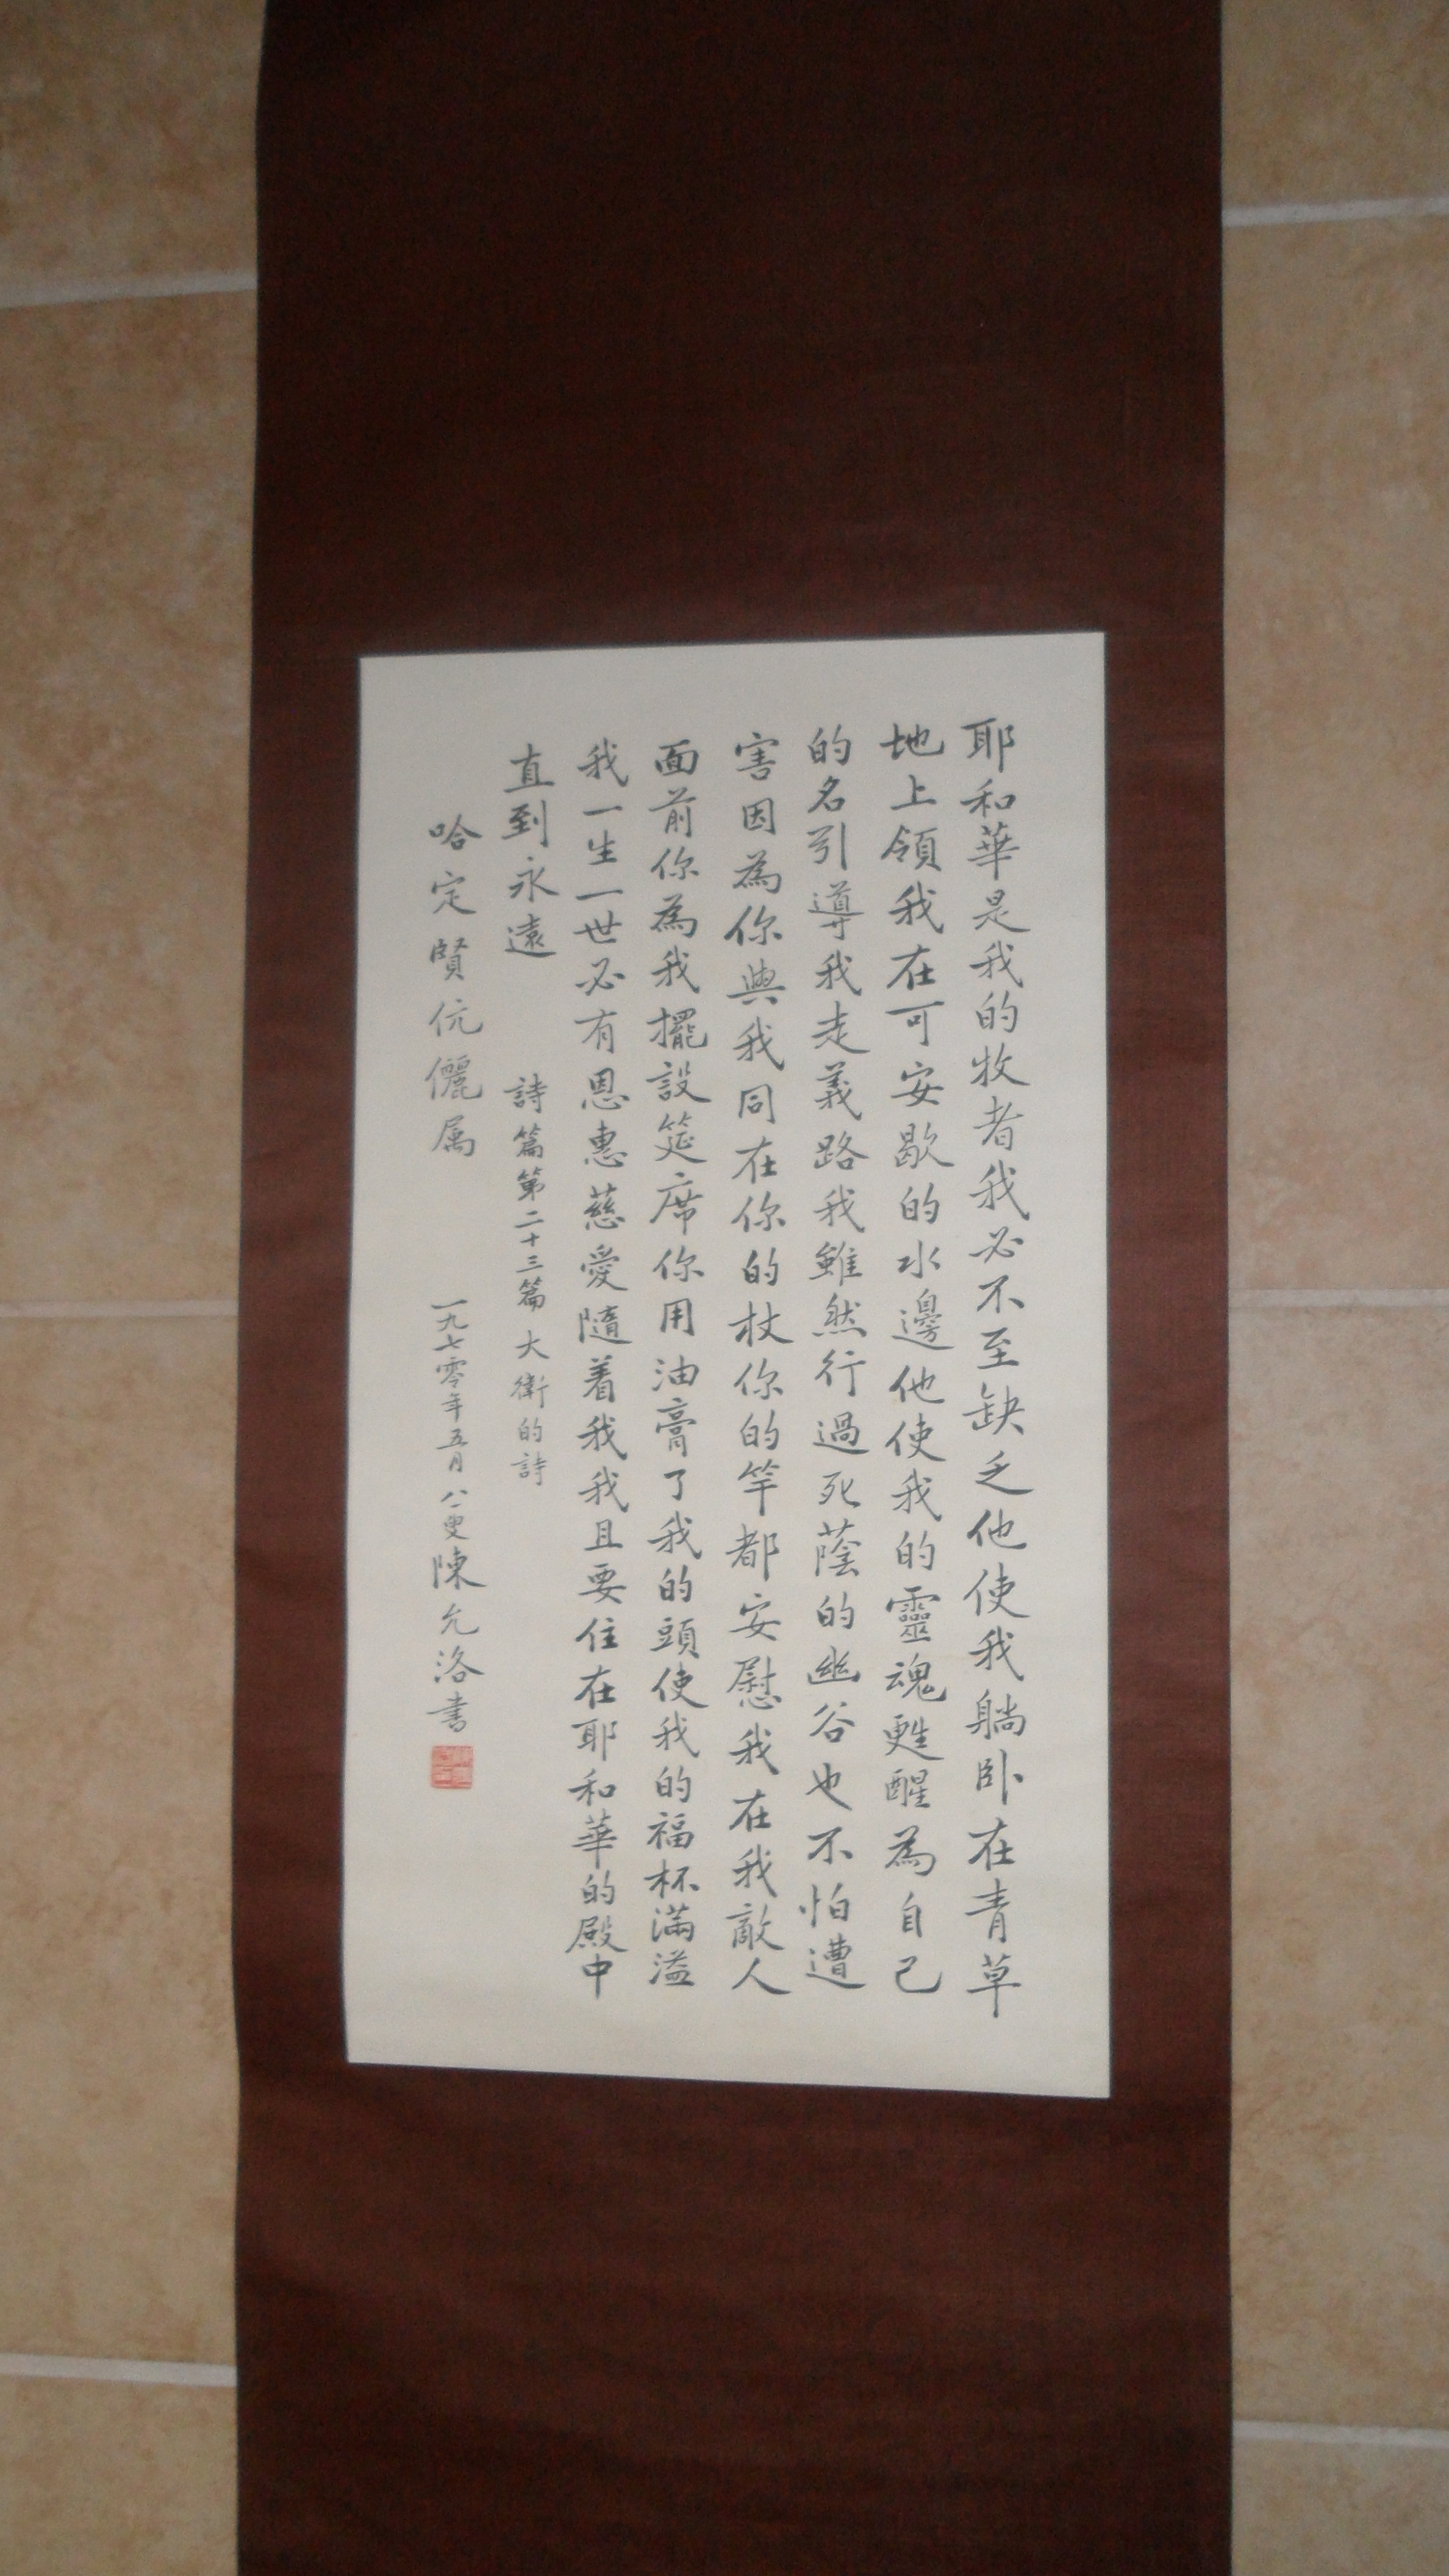 耶和華是我的牧者我必不至缺乏他使我躺卧在青草
地上領我在可安歇的水邊他使我的靈魂甦醒為自己
的名引導我走義路我雖然行過死蔭的幽谷也不怕遭
害因為你與我同在你的杖你的竿都安慰我在我敵人
面前你為我擺設筵席你用油膏了我的頭使我的福杯滿溢
我一生一世必有恩惠慈愛隨着我我且要住在耶和華的殿中
直到永遠 詩篇第二十三篇 大衛的詩
哈定賢伉儷属 一九七零年五月 八一叟陳允洛書